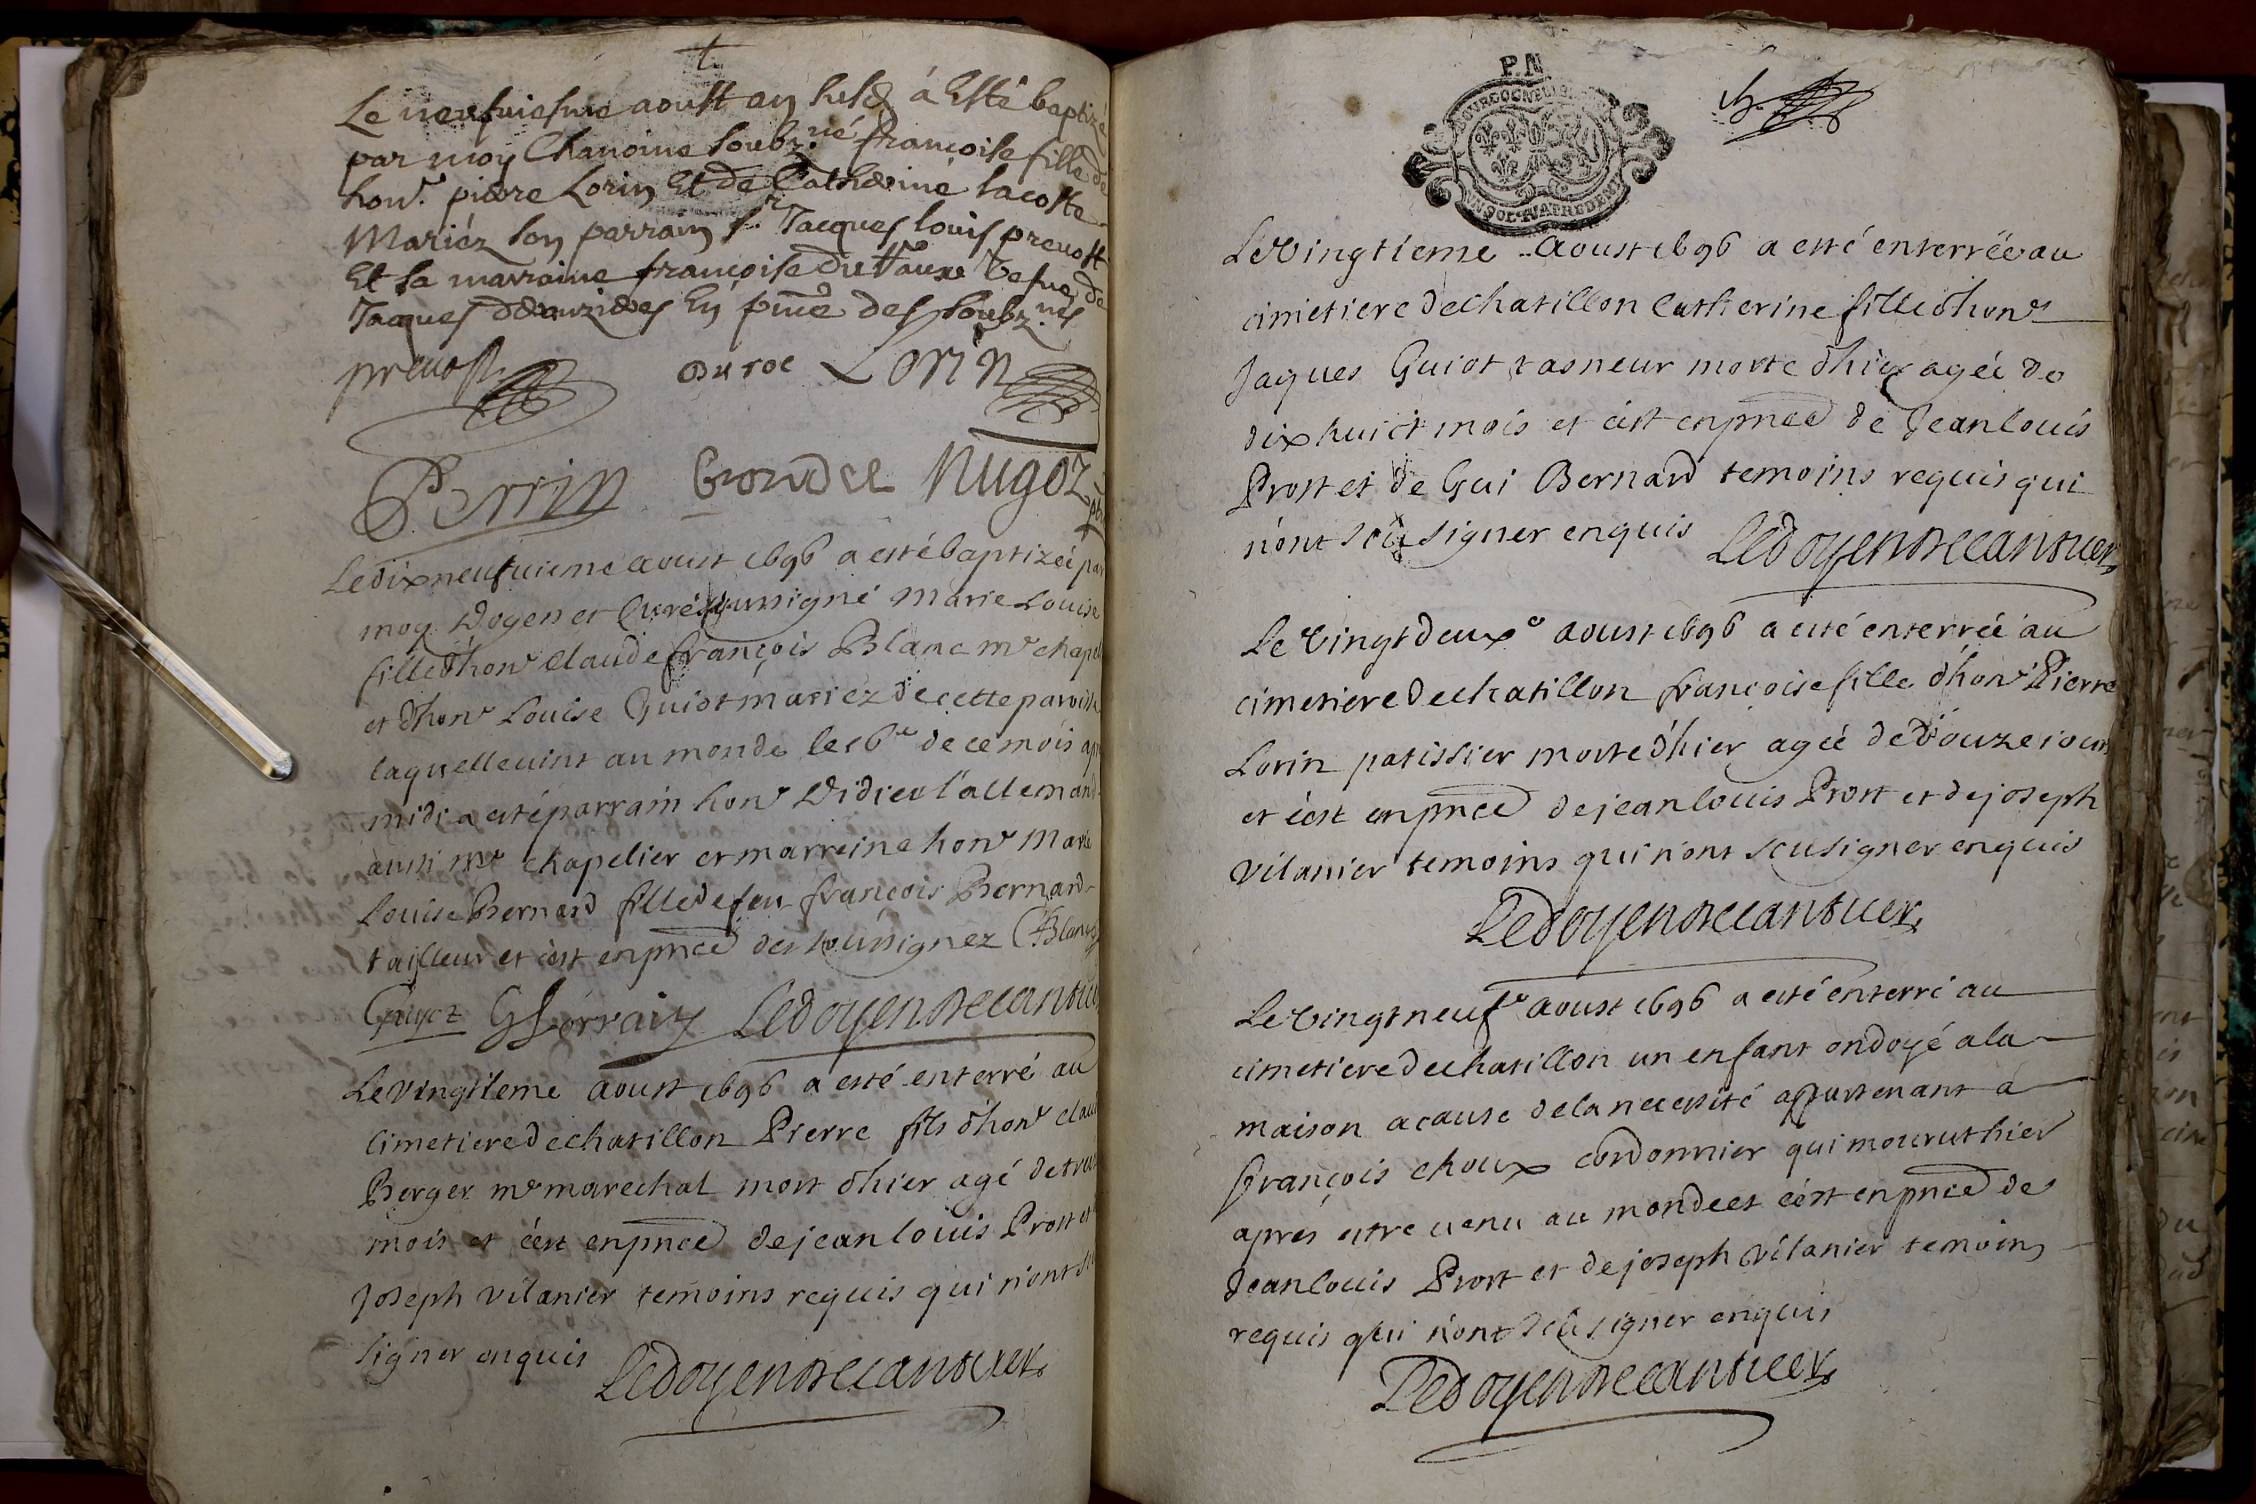 Le neufuiesme aoust an susd. á Esté baptizé
par moy Chanoine soubz.né françoise fille de
hon.r pierre Lorin Et de Catherine Lacoste
Mariéz son parrain s.r Jacques louis preuost
Et sa marraine françoise
Jacques En p̃nce des soubz.nés
preuost Duroc Lorin
Perrin Nugoz
Le dixneufuieme aoust 1696 a esté baptizéé par
moy Doyen et Curé soussigné Marie Louise
fille d'hon.r Claude françois Blanc m.e chapel
et d'hon.e Louise Guiot mariez de cette paroisse
laquelle uint au monde le 16.e de ce mois apr
midi a esté parrain hon.r Didier l'allemand
aussi m.e chapelier et marreine hon.e Marie
Louise Bernard fille de feu françois Bernard
tailleur et c'est en p̃nce des soussignez CF Blanc
Guyot Le doyen de
Le Vingtieme aoust 1696 a esté enterré au
cimetiere de chatillon Pierre fils d'hon.r clau
Berger m.e marechal mort d'hier agé de
mois et c'est en p̃nce de jean louis Prost et
Joseph vilanier temoins requis qui n'ont
signer enquis Le doyen de
P.N
Le Vingtieme aoust 1696 a esté enterréé au
cimetiere de chatillon Catherine fille d'hon.r
Jaques Guiot tasneur morte d'hier agéé de
dix huict mois et c'est en p̃nce de Jean louis
Prost et de Gui Bernard temoins requis qui
n'ont sçû signer enquis Le doyen de
Le Vingt deux.e aoust 1696 a esté enterréé au
cimetiere de chatillon françoise fille d'hon.r Pierre
Lorin patissier morte d'hier agéé de douze jours
et c'est en p̃nce de jean louis Prost et de joseph
vilanier temoins qui n'ont sceu signer enquis
Le doyen de
Le Vingt neuf.e aoust 1696 a esté enterré au
cimetiere de chatillon un enfant ondoyé a la
maison a cause de la necessité appartenant a
françois choux cordonnier qui mourut hier
aprés estre uenu au monde et c'est en p̃nce de
Jean louis Prost et de joseph vilanier temoins
requis qui n'ont sçû signer enquis
Le doyen de